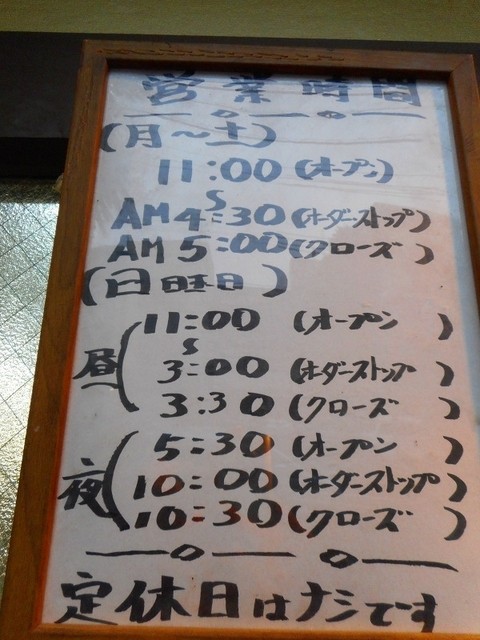 営業時間
(月～土)
11:00(オープン)
S
AM4:30(オーダーストップ)
AM5:00(クローズ)
(日曜日)
11:00(オープン)
S
昼 3:00(オーダーストップ)
3:30(クローズ)
5:30(オープン)
夜 10:00(オーダーストップ)
10:30(クローズ)
定休日はナシです